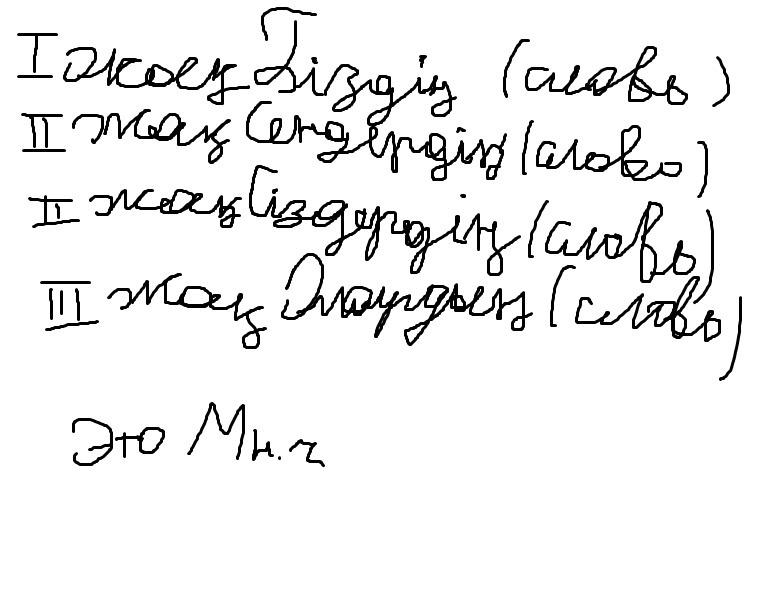 I жақ Біздің (слово)
II жақ Сендердің (слово)
II жақ Сіздердің (слово)
III жақ Олардың (слово)
Это Мн.ч